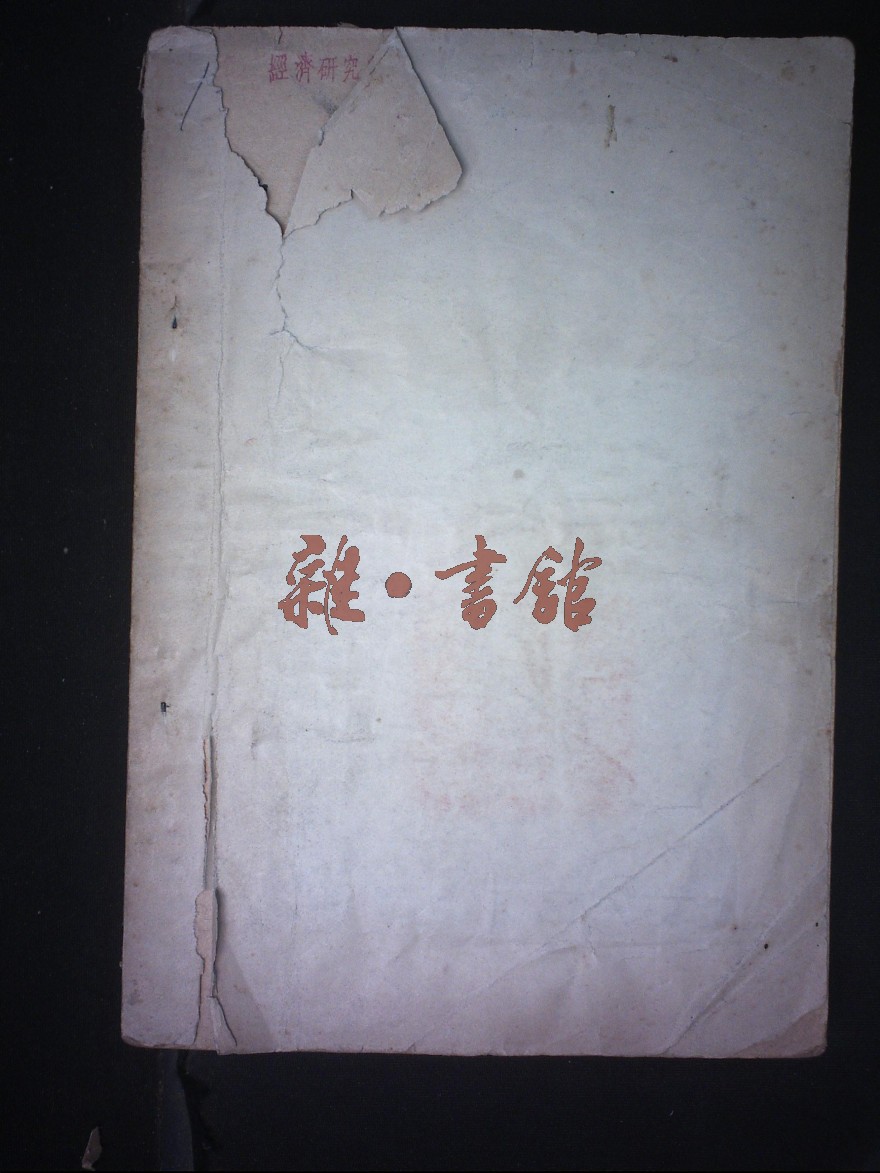 經濟研究
雜·書館